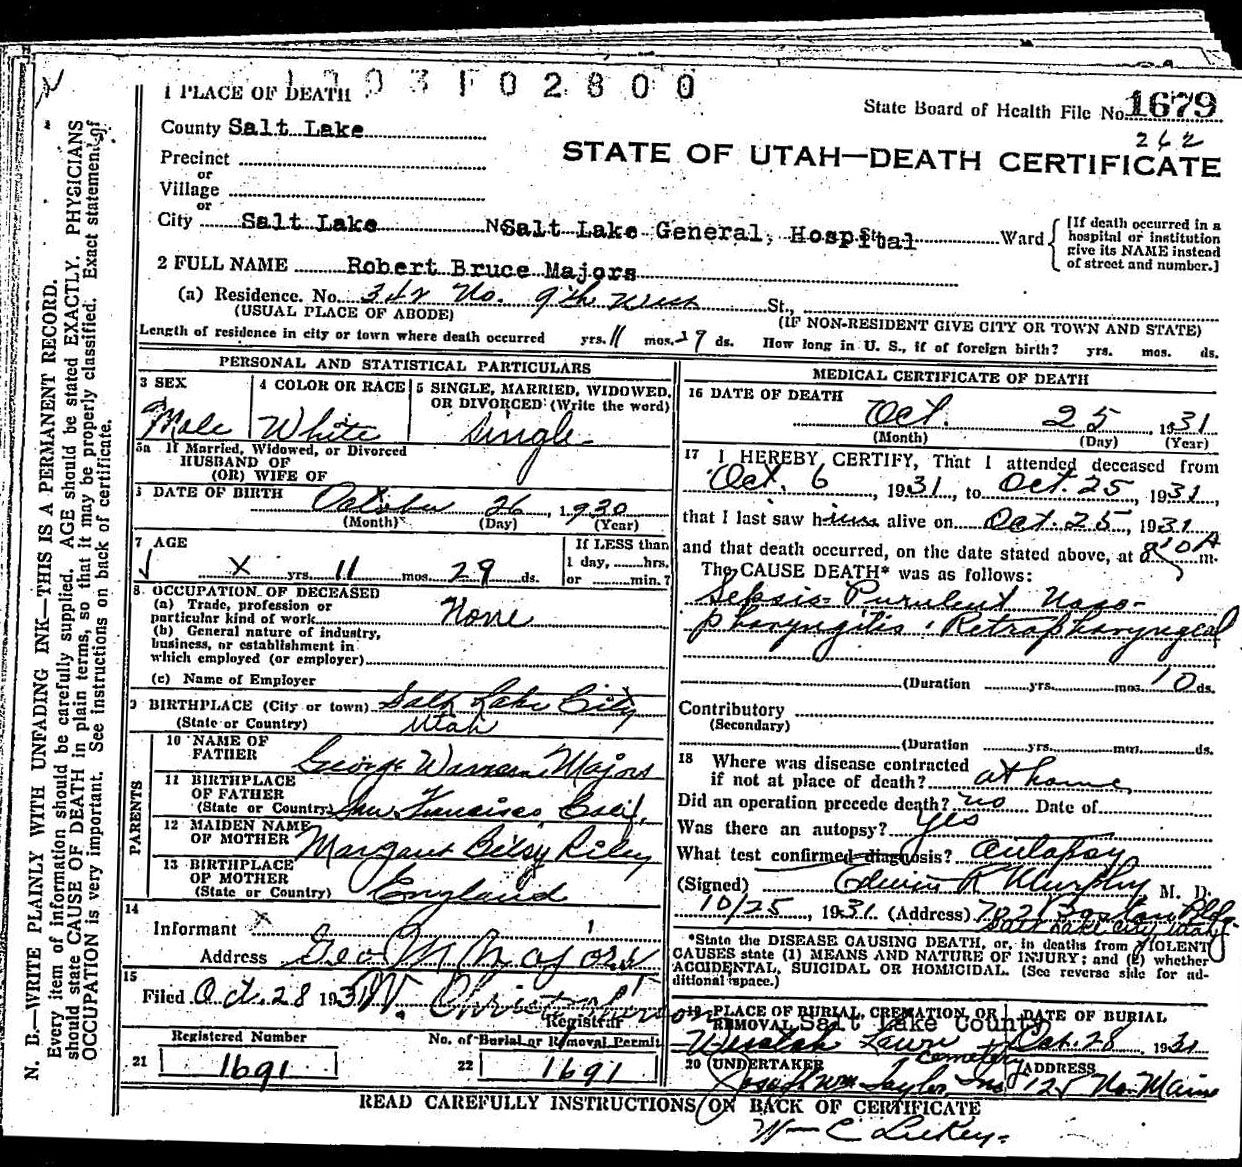 1 PLACE OF DEATH
State Board of Health File No. 1679
262
County Salt Lake
STATE OF UTAH—DEATH CERTIFICATE
Precinct
or
Village
or
City Salt Lake No Salt Lake General, Hospital St. Ward
[If death occurred in a hospital or institution give its NAME instead of street and number.]
2 FULL NAME Robert Bruce Majors
(a) Residence. No. 342 No. 9th West St.,
(USUAL PLACE OF ABODE) (IF NON-RESIDENT GIVE CITY OR TOWN AND STATE)
Length of residence in city or town where death occurred yrs. 11 mos. 29 ds. How long in U. S., if of foreign birth? yrs. mos. ds.
PERSONAL AND STATISTICAL PARTICULARS
3 SEX
Male
4 COLOR OR RACE
White
5 SINGLE, MARRIED, WIDOWED,
OR DIVORCED (Write the word)
Single
5a If Married, Widowed, or Divorced
HUSBAND OF
(OR) WIFE OF
DATE OF BIRTH October 26, 1930
(Month) (Day) (Year)
7 AGE
X yrs. 11 mos. 29 ds.
If LESS than
1 day, hrs.
or min.?
8. OCCUPATION OF DECEASED
(a) Trade, profession or
particular kind of work None
(b) General nature of industry,
business, or establishment in
which employed (or employer)
(c) Name of Employer
9 BIRTHPLACE (City or town) Salt Lake City
(State or Country) Utah
PARENTS
10 NAME OF
FATHER George Warren Majors
11 BIRTHPLACE
OF FATHER
(State or Country) San Francisco Calif.
12 MAIDEN NAME
OF MOTHER Margaret Betsy Riley
13 BIRTHPLACE
OF MOTHER
(State or Country) England
14
Informant
Address Geo M Majors
15
Filed Oct. 28 1931
Registrar
Registered Number No. of Burial or Removal Permit
21 1691 22 1691
MEDICAL CERTIFICATE OF DEATH
16 DATE OF DEATH
Oct. 25, 1931
(Month) (Day) (Year)
17 I HEREBY CERTIFY, That I attended deceased from
Oct. 6, 1931, to Oct. 25, 1931,
that I last saw him alive on Oct. 25, 1931
and that death occurred, on the date stated above, at m.
The CAUSE DEATH* was as follows:
Sepsis - Purulent Naso-
pharyngitis, Retropharyngeal
(Duration yrs. mos. 10 ds.
Contributory
(Secondary)
(Duration yrs. mos. ds.
18 Where was disease contracted
if not at place of death? at home
Did an operation precede death? no Date of
Was there an autopsy? Yes
What test confirmed diagnosis? autopsy
(Signed) Edwin R Murphy M. D.
10/25, 1931 (Address) Bldg.
Salt Lake City Utah
*State the DISEASE CAUSING DEATH, or, in deaths from VIOLENT
CAUSES state (1) MEANS AND NATURE OF INJURY; and (2) whether
ACCIDENTAL, SUICIDAL OR HOMICIDAL. (See reverse side for ad-
ditional space.)
19 PLACE OF BURIAL, CREMATION, OR
REMOVAL Salt Lake County
Wasatch Lawn Cemetery
DATE OF BURIAL
Oct. 28, 1931
20 UNDERTAKER
Joseph Wm Taylor, Inc
ADDRESS
125 No. Main
READ CAREFULLY INSTRUCTIONS ON BACK OF CERTIFICATE
N. B.—WRITE PLAINLY WITH UNFADING INK—THIS IS A PERMANENT RECORD.
Every item of information should be carefully supplied. AGE should be stated EXACTLY. PHYSICIANS
should state CAUSE OF DEATH in plain terms, so that it may be properly classified. Exact statement of
OCCUPATION is very important. See instructions on back of certificate.